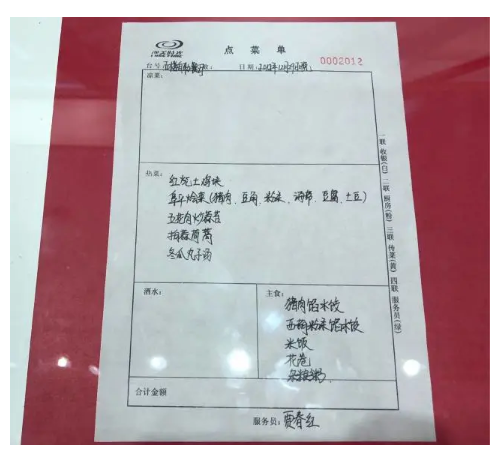 点 菜 单
0002012
台号:
日期:2012年12月
凉菜:
热菜:
红烧土鸡块
阜平烩菜(猪肉、豆角、粉条、海带、豆腐、土豆)
五花肉炒蒜苔
拍蒜茼蒿
冬瓜丸子汤
酒水:
主食:
猪肉馅水饺
西葫粉条馅水饺
米饭
花卷
杂粮粥
合计金额
服务员:贾春红
一联 收银(白) 二联 厨房(粉) 三联 传菜(黄) 四联 服务员(绿)